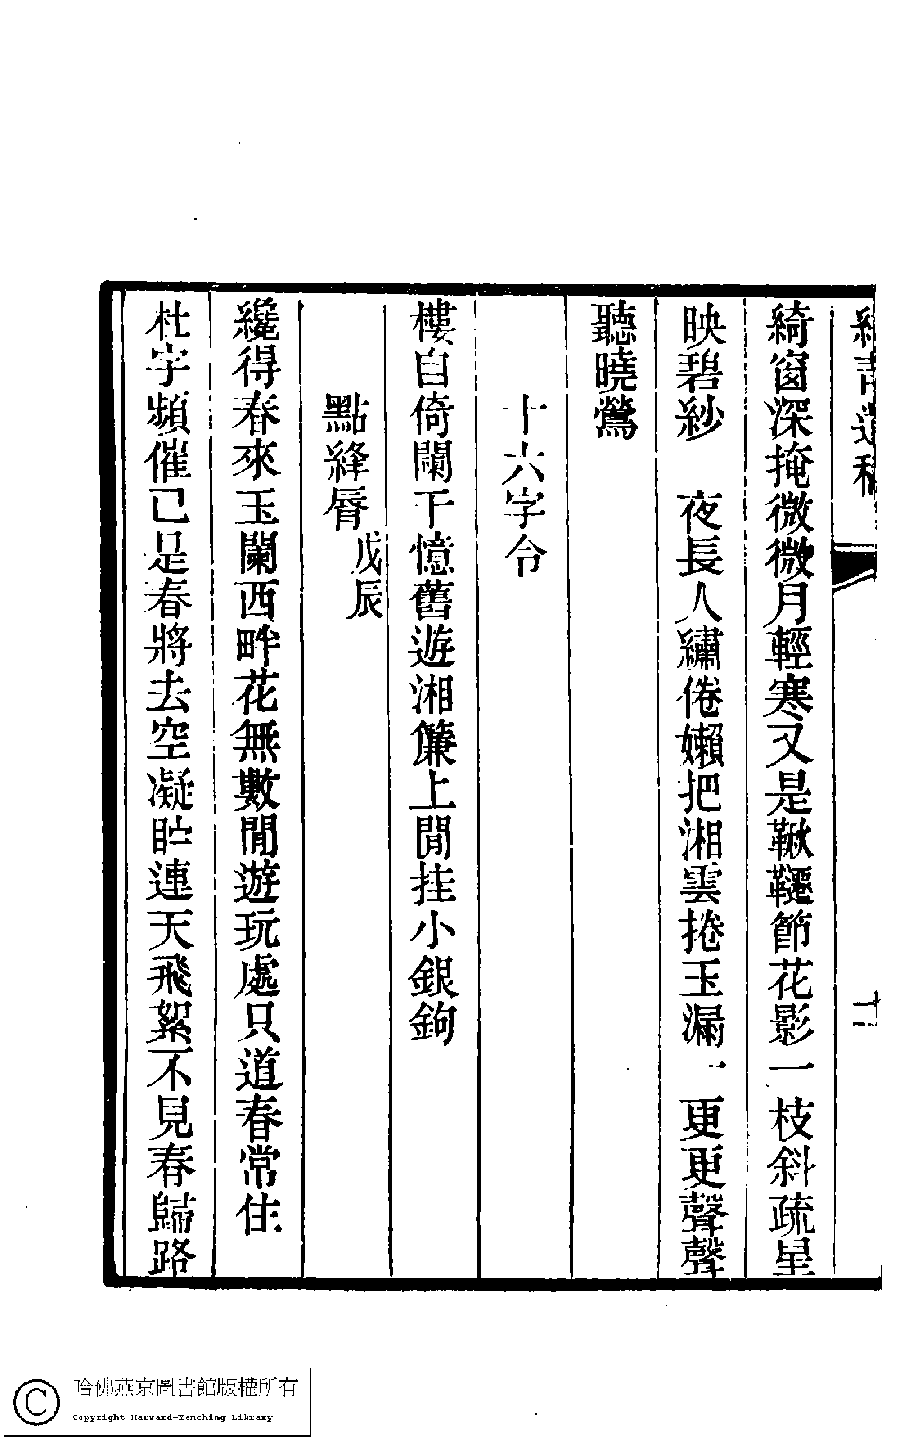 綺窗深掩微微月輕寒又是鞦韆節花影一枝斜疏星
映碧紗　夜長人繡倦嬾把湘雲捲玉漏一更更聲聲
聽曉鶯
十六字令
樓自倚闌干憶舊遊湘簾上閒挂小銀鉤
點絳脣戊辰
纔得春來玉闌西畔花無數閒遊玩處只道春常住
杜宇頻催已是春將去空凝眝連天飛絮不見春歸路
哈佛燕京圖書館版權所有
Copyright Harvard-Yenching Library